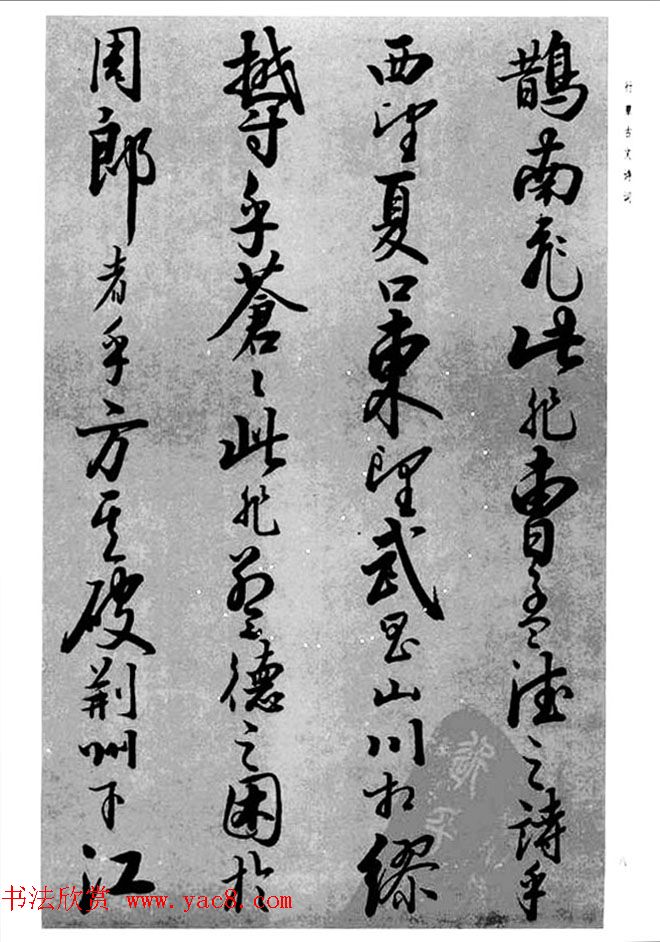 行草古文詩詞
鵲南飛此非曹孟德之詩乎
西望夏口東望武昌山川相繆
鬱乎蒼〻此非孟德之困於
周郎者乎方其破荊州下江
八
书法欣赏 www.yac8.com